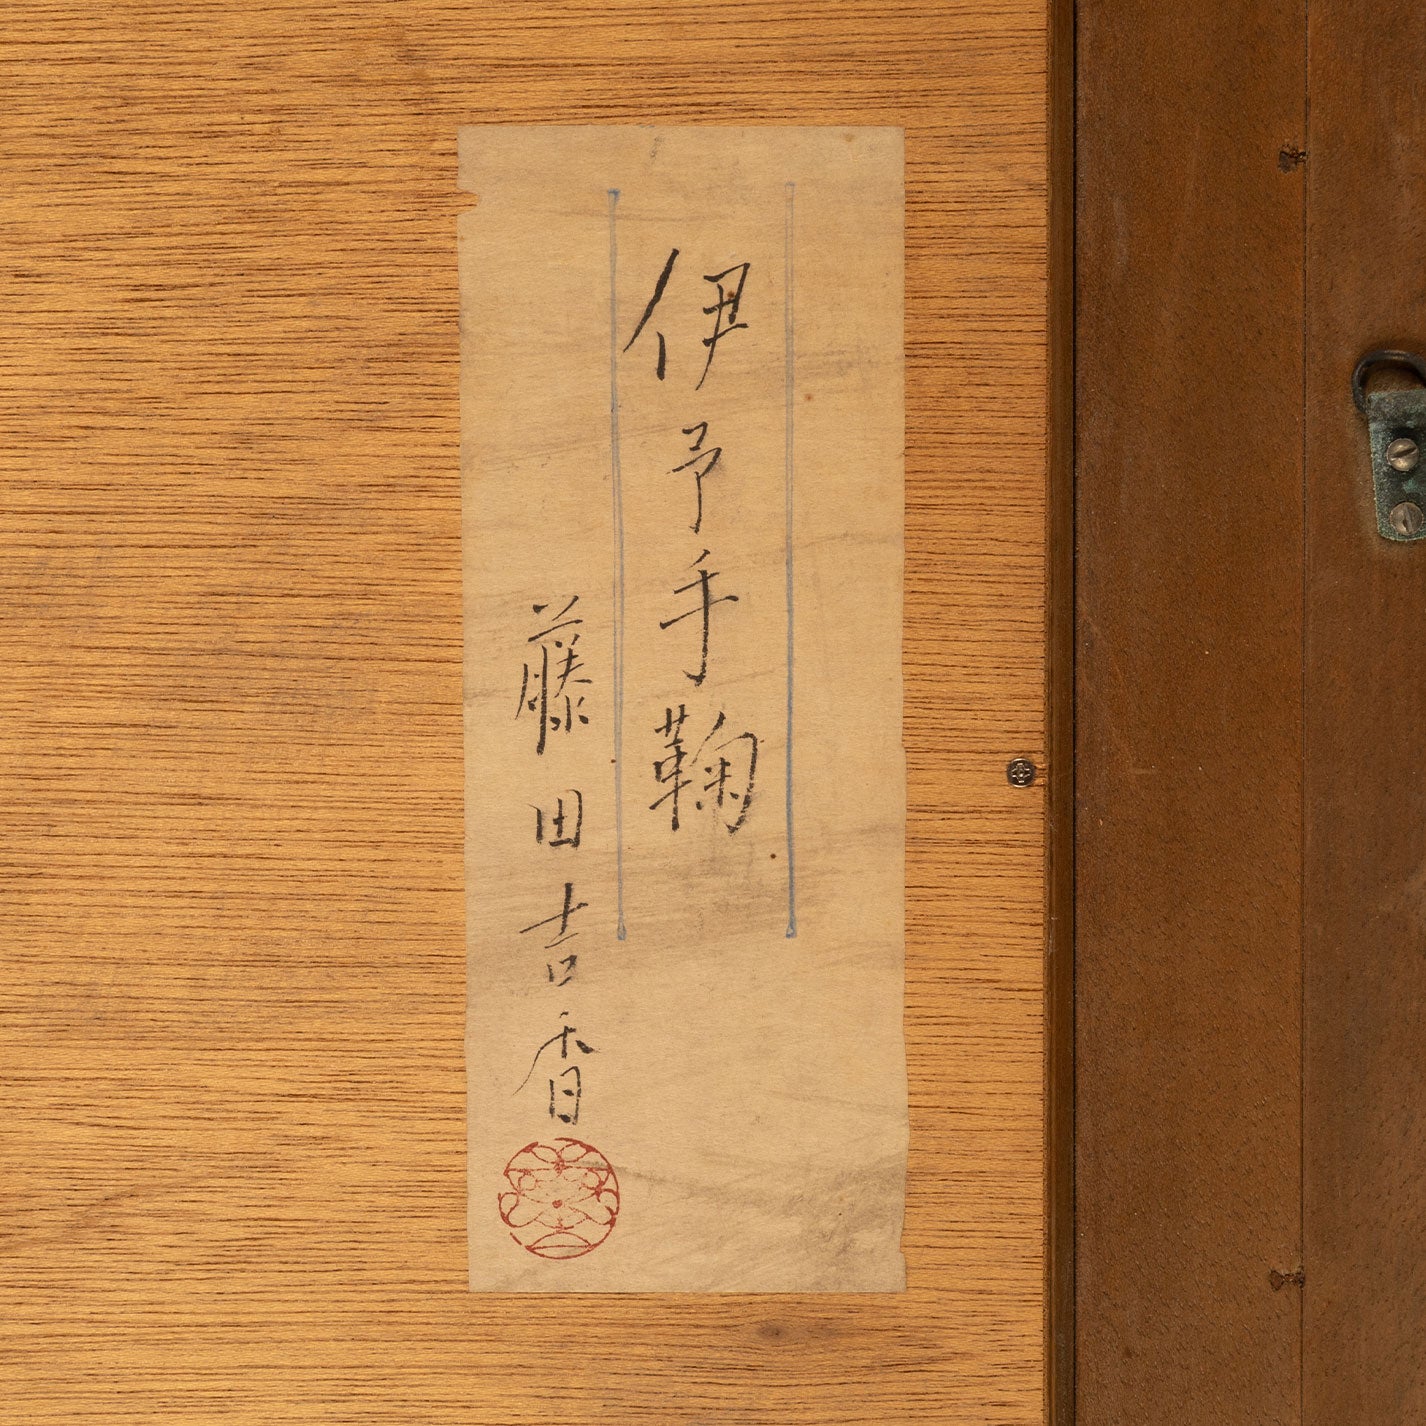 伊予手鞠
藤田吉香